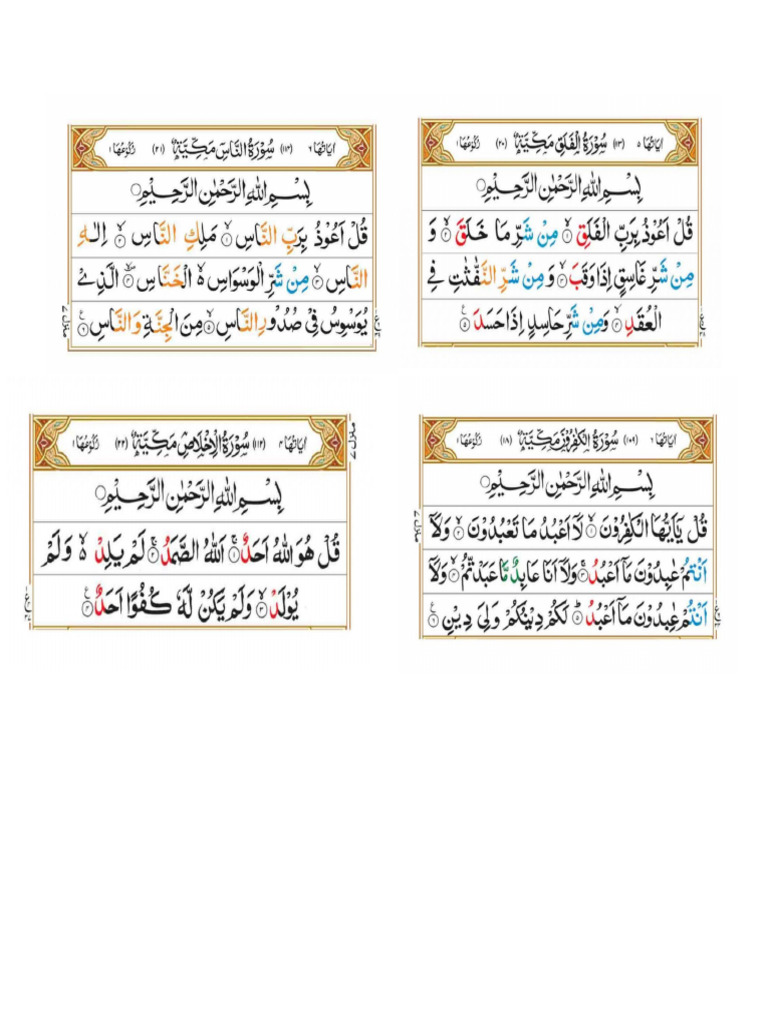 اٰيَاتُهَا ٥ (١١٣) سُوْرَةُ الْفَلَقِ مَكِّيَّةٌ (٢٠) رُكُوْعُهَا ١
بِسْمِ اللّٰهِ الرَّحْمٰنِ الرَّحِيْمِ
قُلْ اَعُوْذُ بِرَبِّ الْفَلَقِ ١ مِنْ شَرِّ مَا خَلَقَ ٢ وَ
مِنْ شَرِّ غَاسِقٍ اِذَا وَقَبَ ٣ وَ مِنْ شَرِّ النَّفّٰثٰتِ فِي
الْعُقَدِ ٤ وَمِنْ شَرِّ حَاسِدٍ اِذَا حَسَدَ ٥
اٰيَاتُهَا ٦ (١١٤) سُوْرَةُ النَّاسِ مَكِّيَّةٌ (٢١) رُكُوْعُهَا ١
بِسْمِ اللّٰهِ الرَّحْمٰنِ الرَّحِيْمِ
قُلْ اَعُوْذُ بِرَبِّ النَّاسِ ١ مَلِكِ النَّاسِ ٢ اِلٰهِ
النَّاسِ ٣ مِنْ شَرِّ الْوَسْوَاسِ ٥ الْخَنَّاسِ ٤ الَّذِيْ
يُوَسْوِسُ فِيْ صُدُوْرِ النَّاسِ ٥ مِنَ الْجِنَّةِ وَالنَّاسِ ٦
منزل ٧
اٰيَاتُهَا ٦ (١٠٩) سُوْرَةُ الْكٰفِرُوْنَ مَكِّيَّةٌ (١٨) رُكُوْعُهَا ١
بِسْمِ اللّٰهِ الرَّحْمٰنِ الرَّحِيْمِ
قُلْ يٰٓاَيُّهَا الْكٰفِرُوْنَ ١ لَآ اَعْبُدُ مَا تَعْبُدُوْنَ ٢ وَلَآ
اَنْتُمْ عٰبِدُوْنَ مَآ اَعْبُدُ ٣ وَلَآ اَنَا عَابِدٌ مَّا عَبَدْتُّمْ ٤ وَلَآ
اَنْتُمْ عٰبِدُوْنَ مَآ اَعْبُدُ ٥ لَكُمْ دِيْنُكُمْ وَلِيَ دِيْنِ ٦
منزل ٧
اٰيَاتُهَا ٤ (١١٢) سُوْرَةُ الْاِخْلَاصِ مَكِّيَّةٌ (٢٢) رُكُوْعُهَا ١
بِسْمِ اللّٰهِ الرَّحْمٰنِ الرَّحِيْمِ
قُلْ هُوَ اللّٰهُ اَحَدٌ ١ اَللّٰهُ الصَّمَدُ ٢ لَمْ يَلِدْ ٥ وَلَمْ
يُوْلَدْ ٣ وَلَمْ يَكُنْ لَّهٗ كُفُوًا اَحَدٌ ٤
منزل ٧